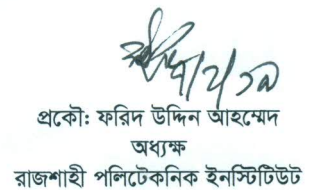 প্রকৌ: ফরিদ উদ্দিন আহম্মেদ
অধ্যক্ষ
রাজশাহী পলিটেকনিক ইনস্টিটিউট